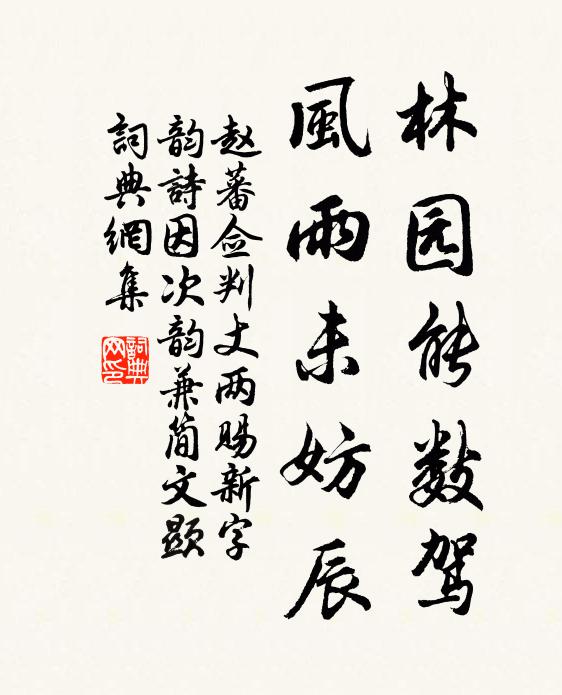 林园能数驾
風雨未妨辰
赵蕃佥判丈两赐新字
韵詩因次韵兼简文顯
詞典網集
詞典
网印